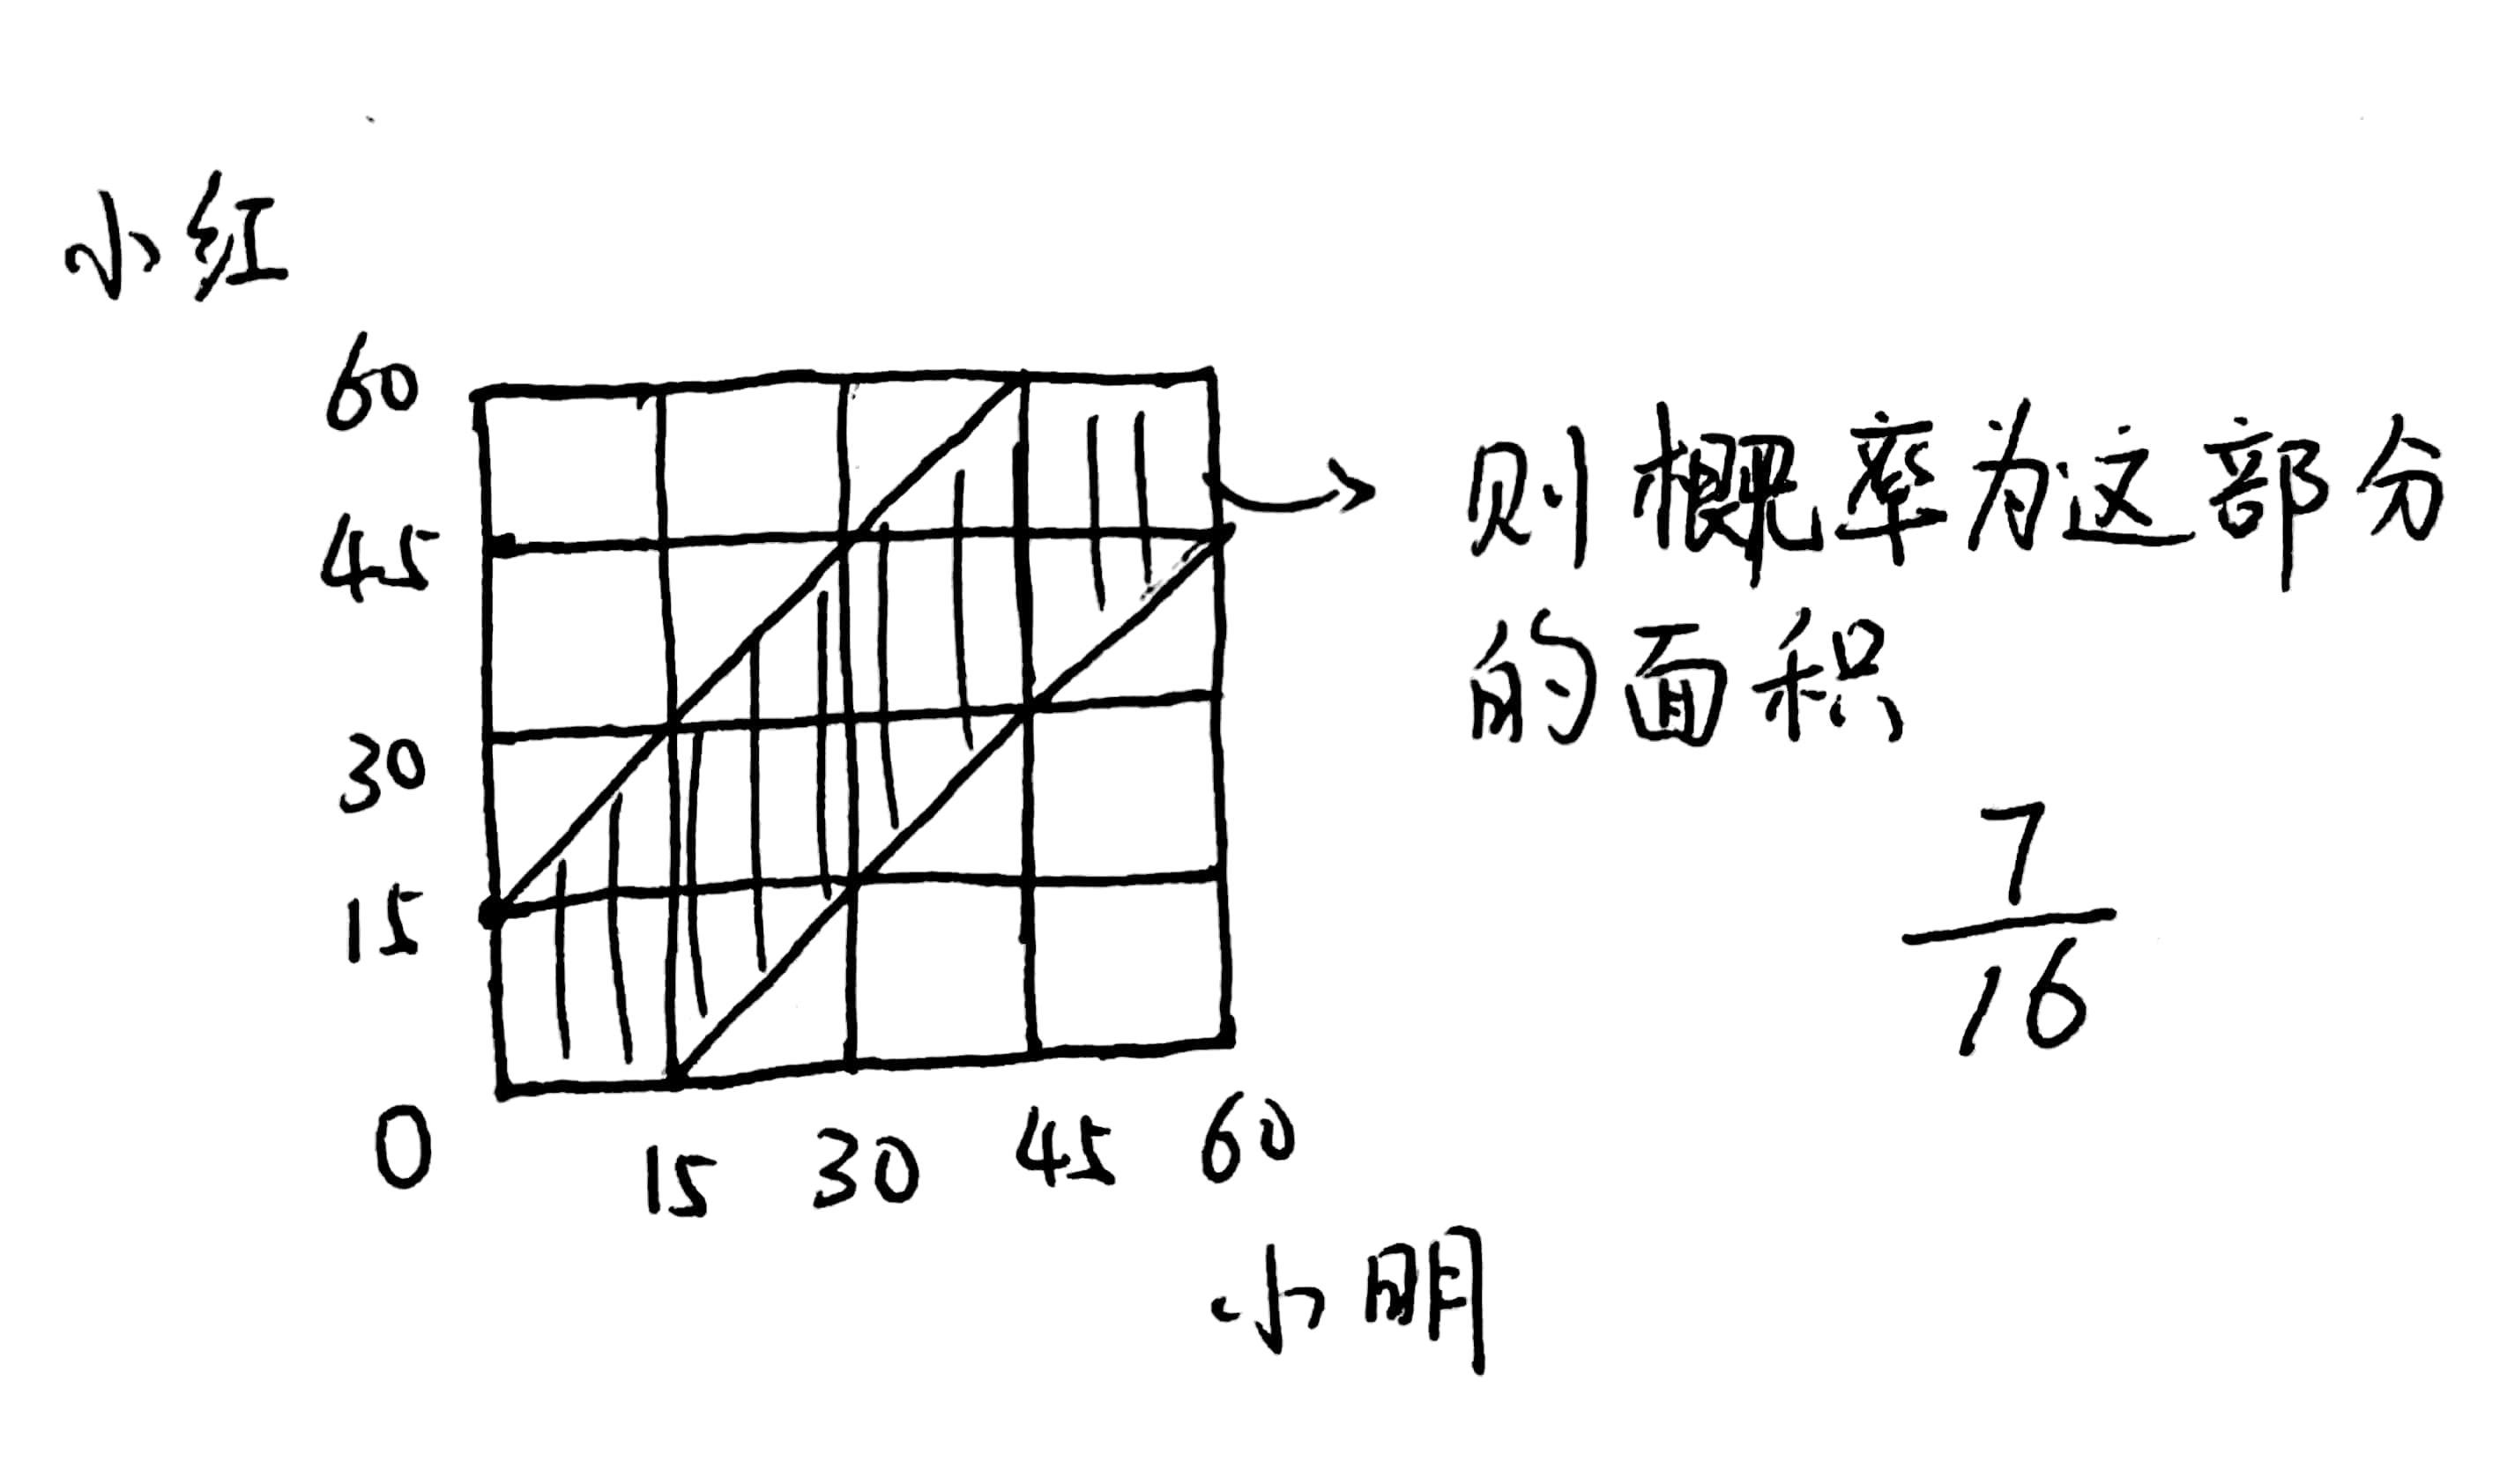 小红
60
45
30
15
0
15 30 45 60
小明
则概率为这部分
的面积
7
16